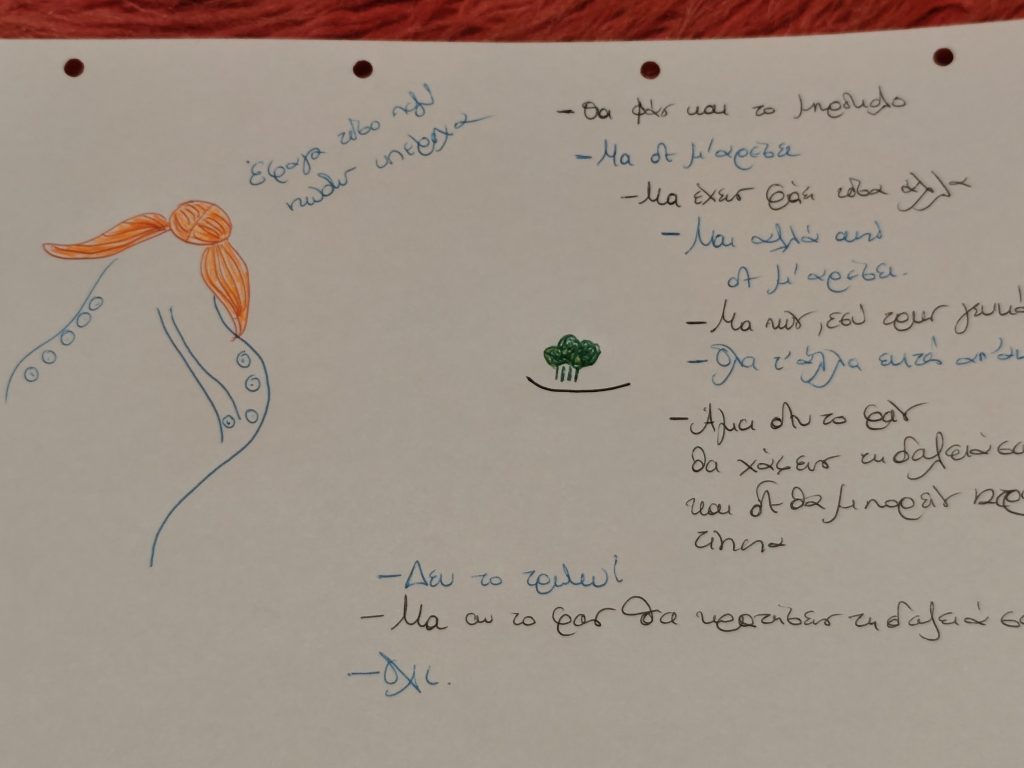 Έφαγα τόσο πολύ
που υπάρχω
- Θα φας και το μπρόκολο
- Μα δε μ' αρέσει
- Μα έχεις φάει τόσα άλλα
- Ναι αλλά αυτό
δε μ' αρέσει.
- Μα πώς, εσύ τρως γενικά
- Όλα τ' άλλα εκτός απ' αυ
- Άμα δεν το φας
θα χάσεις τη δαλειά σο
και δε θα μπορείς
τίποτα
- Δεν το τρώω!
- Μα αν το φας θα κρατήσεις τη δαλειά σο
- Όχι.